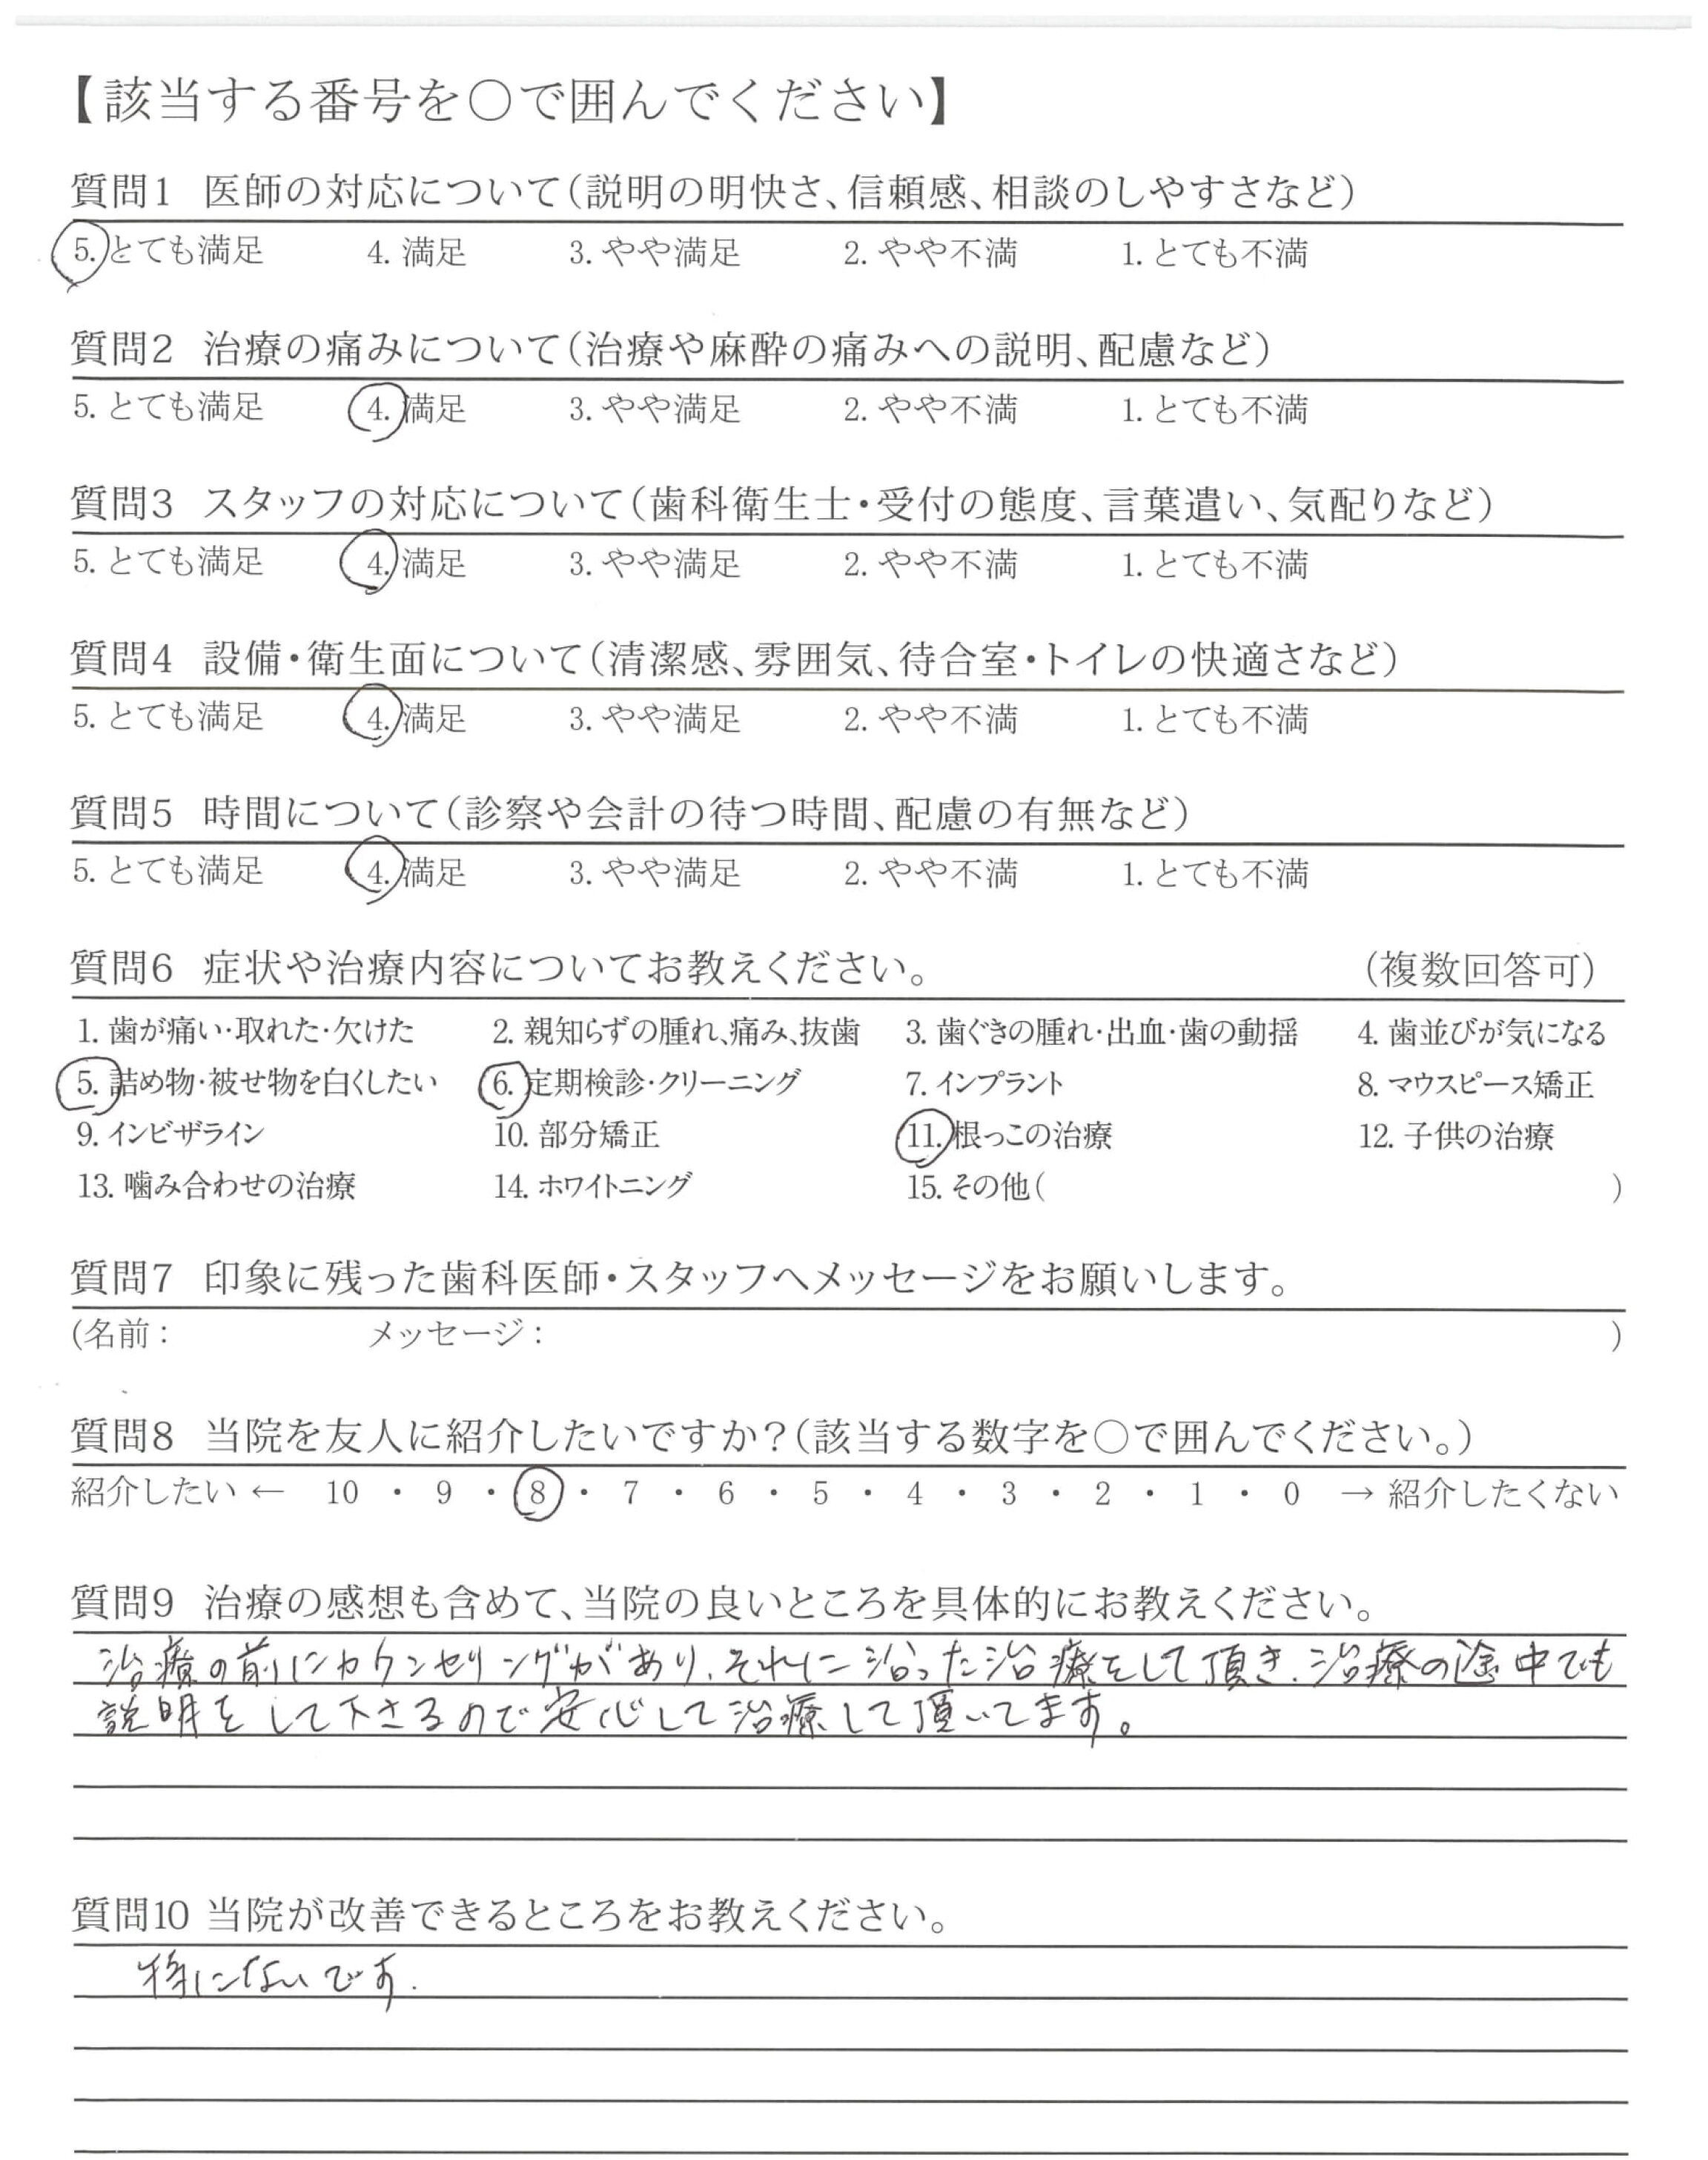 【該当する番号を○で囲んでください】
質問1 医師の対応について(説明の明快さ、信頼感、相談のしやすさなど)
5. とても満足 4. 満足 3. やや満足 2. やや不満 1. とても不満
質問2 治療の痛みについて(治療や麻酔の痛みへの説明、配慮など)
5. とても満足 4. 満足 3. やや満足 2. やや不満 1. とても不満
質問3 スタッフの対応について(歯科衛生士・受付の態度、言葉遣い、気配りなど)
5. とても満足 4. 満足 3. やや満足 2. やや不満 1. とても不満
質問4 設備・衛生面について(清潔感、雰囲気、待合室・トイレの快適さなど)
5. とても満足 4. 満足 3. やや満足 2. やや不満 1. とても不満
質問5 時間について(診察や会計の待つ時間、配慮の有無など)
5. とても満足 4. 満足 3. やや満足 2. やや不満 1. とても不満
質問6 症状や治療内容についてお教えください。 (複数回答可)
1. 歯が痛い・取れた・欠けた 2. 親知らずの腫れ、痛み、抜歯 3. 歯ぐきの腫れ・出血・歯の動揺 4. 歯並びが気になる
5. 詰め物・被せ物を白くしたい 6. 定期検診・クリーニング 7. インプラント 8. マウスピース矯正
9. インビザライン 10. 部分矯正 11. 根っこの治療 12. 子供の治療
13. 噛み合わせの治療 14. ホワイトニング 15. その他( )
質問7 印象に残った歯科医師・スタッフへメッセージをお願いします。
(名前: メッセージ: )
質問8 当院を友人に紹介したいですか?(該当する数字を○で囲んでください。)
紹介したい ← 10 ・ 9 ・ 8 ・ 7 ・ 6 ・ 5 ・ 4 ・ 3 ・ 2 ・ 1 ・ 0 → 紹介したくない
質問9 治療の感想も含めて、当院の良いところを具体的にお教えください。
治療の前にカウンセリングがあり、それに沿った治療をして頂き、治療の途中でも
説明をして下さるので安心して治療して頂いてます。
質問10 当院が改善できるところをお教えください。
特にないです.